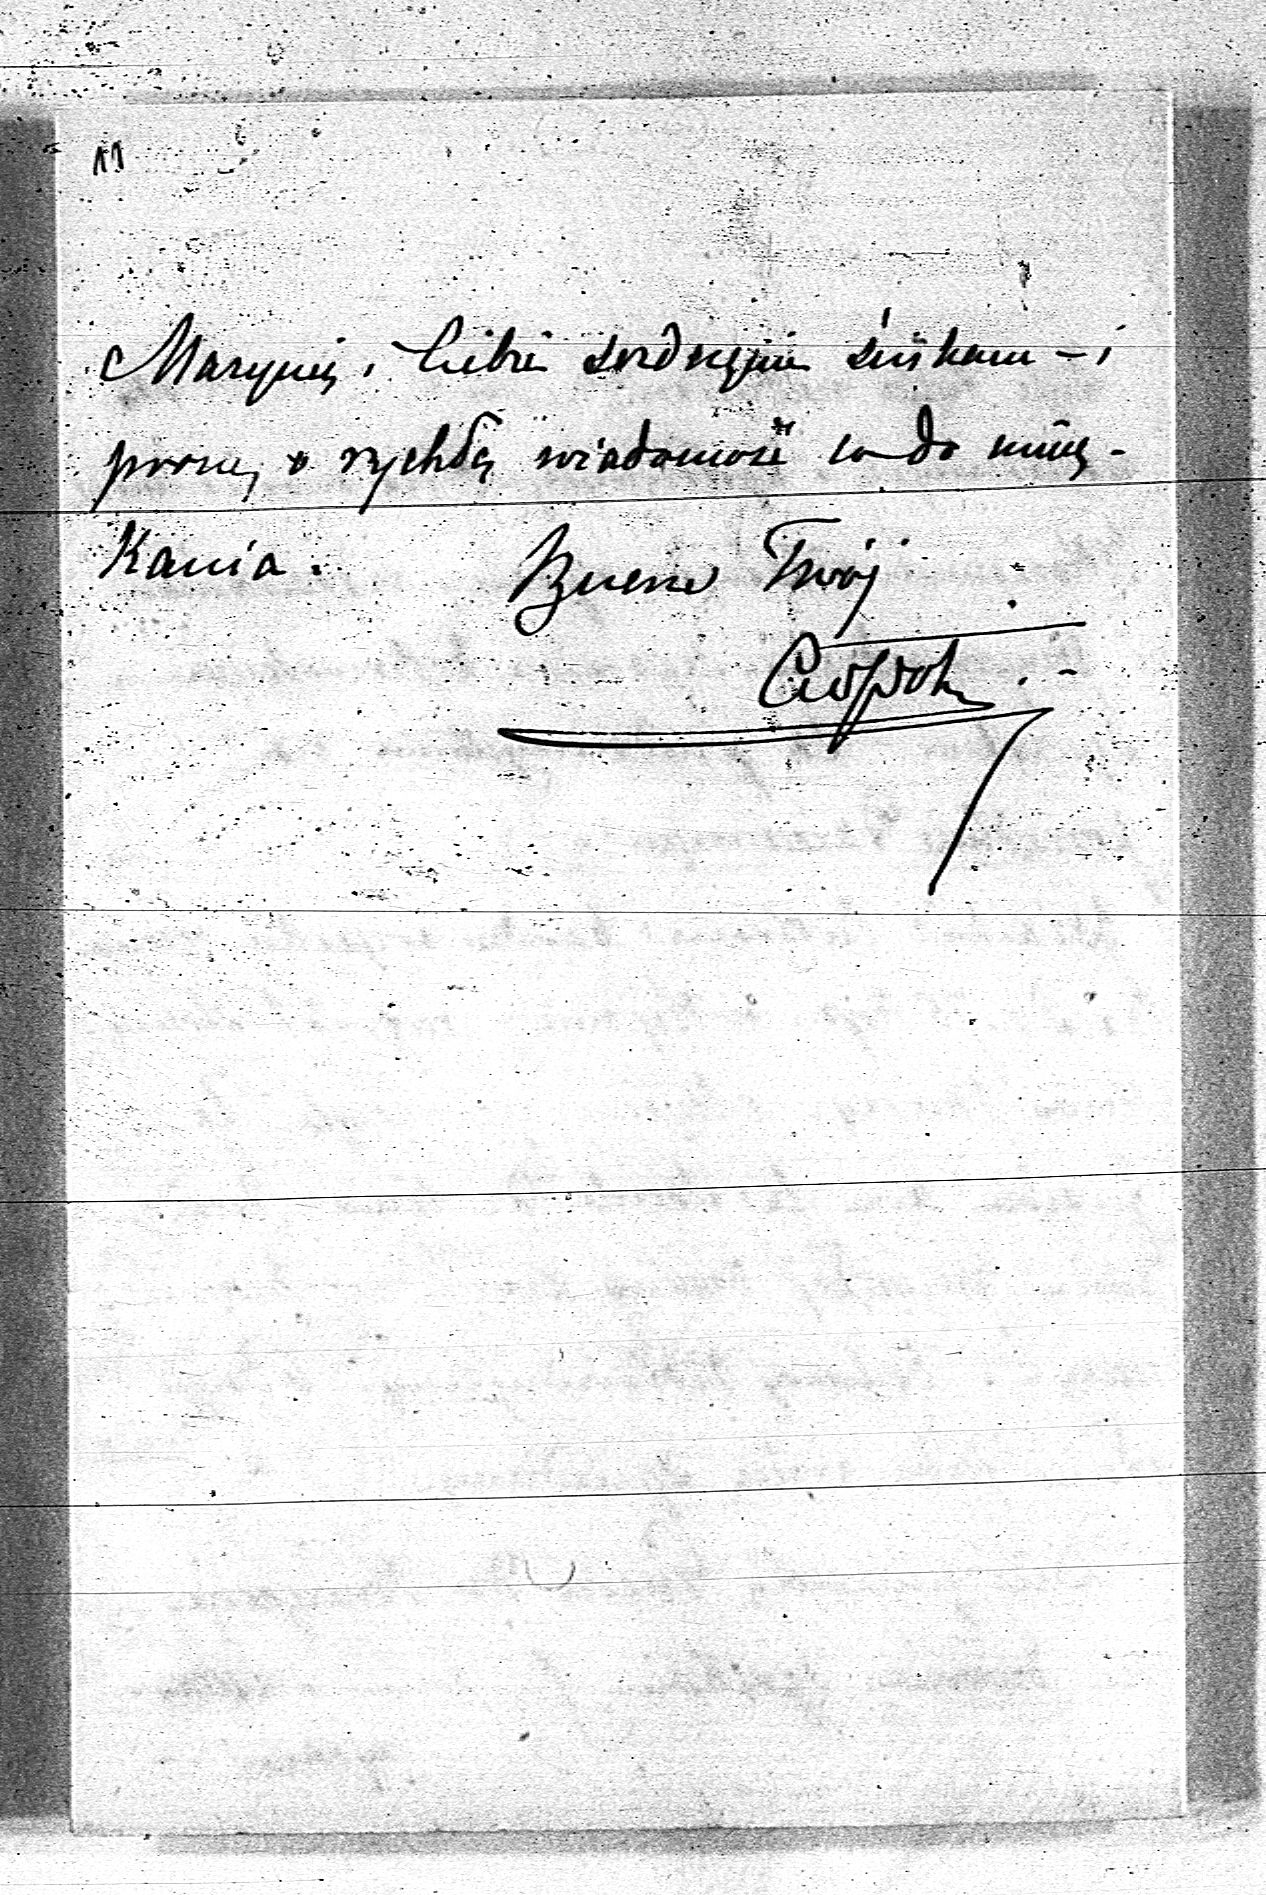 11
Marynię i Ciebie serdecznie ściskam – i
proszę o rychłą wiadomość co do miesz-
kania.
Twój